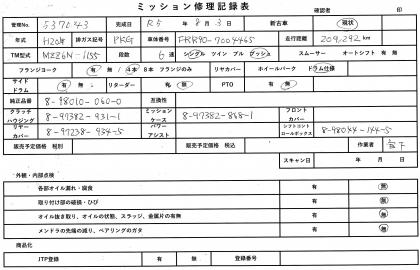 ミッション修理記録表
確認者 印
管理No. 537543 完成日 R5 年 8 月 3 日 新古車 現状
年式 H20年 排ガス記号 PKG 車体番号 FRR90-7004465 走行距離 209,292 km
TM型式 MZZ6N-1155 段数 6 速 シングル ツイン プル プッシュ スムーサー オートシフト 有 無
フランジヨーク 有 無 / 4本 8本 フランジのみ リヤカバー ホイールパーク ドラム仕様
サイドドラム 有 無 リターダー 有 無 PTO 有 無
純正品番 8-98010-060-0 互換性
クラッチハウジング 8-97382-931-1 ミッションケース 8-97382-868-1 フロントカバー
リヤーカバー 8-97238-934-5 パワーアシスト シフトコントロールボックス 8-98044-144-5
販売予定価格 税別 販売予定価格 税込 作業者
スキャン日 年 月 日
・外観・内部点検
各部オイル漏れ・腐食 有 無
取り付け部の破損・ひび 有 無
オイル抜き取り、オイルの状態、スラッジ、金属片の有無 有 無
メンドラの先端の減り、ベアリングのガタ 有 無
商品化
JTP登録 有 無 登録番号